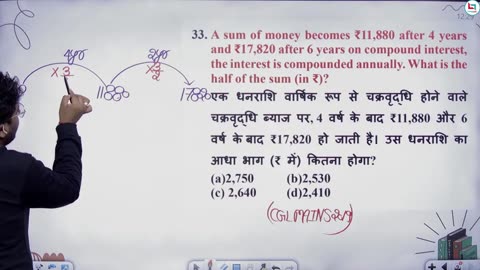 12:29
33. A sum of money becomes ₹11,880 after 4 years
and ₹17,820 after 6 years on compound interest,
the interest is compounded annually. What is the
half of the sum (in ₹)?
एक धनराशि वार्षिक रूप से चक्रवृद्धि होने वाले
चक्रवृद्धि ब्याज पर, 4 वर्ष के बाद ₹11,880 और 6
वर्ष के बाद ₹17,820 हो जाती है। उस धनराशि का
आधा भाग (₹ में) कितना होगा?
(a)2,750 (b)2,530
(c) 2,640 (d)2,410
4yr 2yr
×3 ×3
2
11880